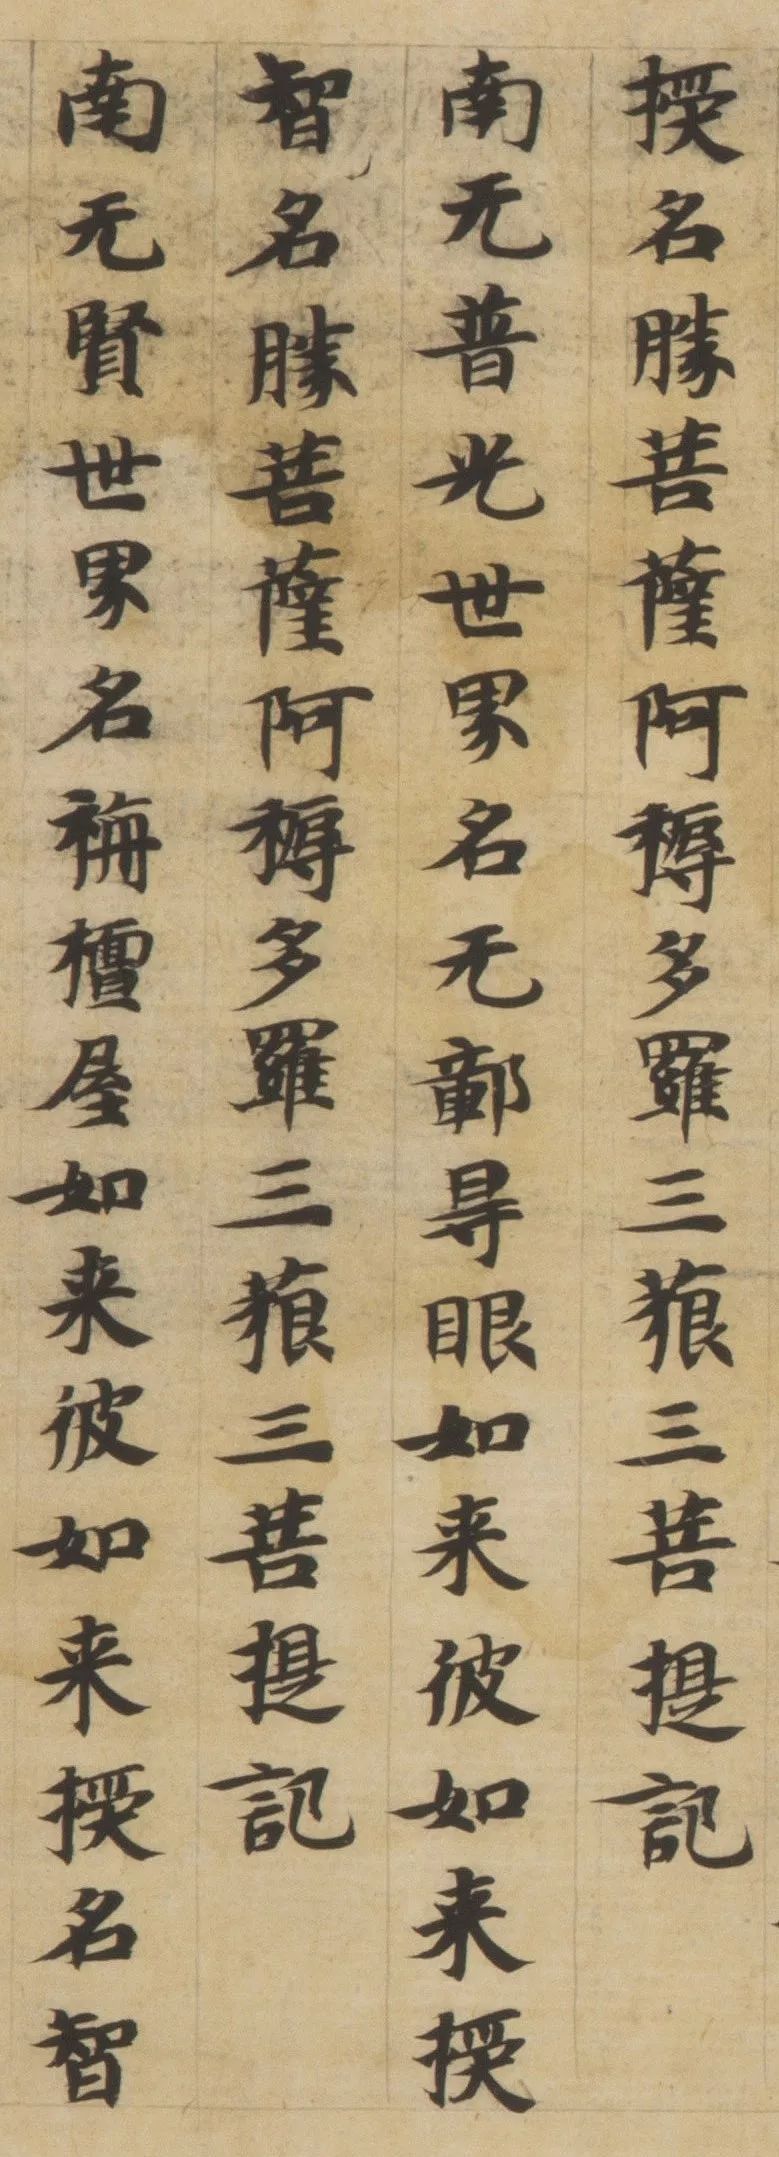 授名勝菩薩阿耨多羅三藐三菩提記
南无普光世界名无鄣㝵眼如来彼如来授
智名勝菩薩阿耨多羅三藐三菩提記
南无賢世界名栴檀屋如来彼如来授名智